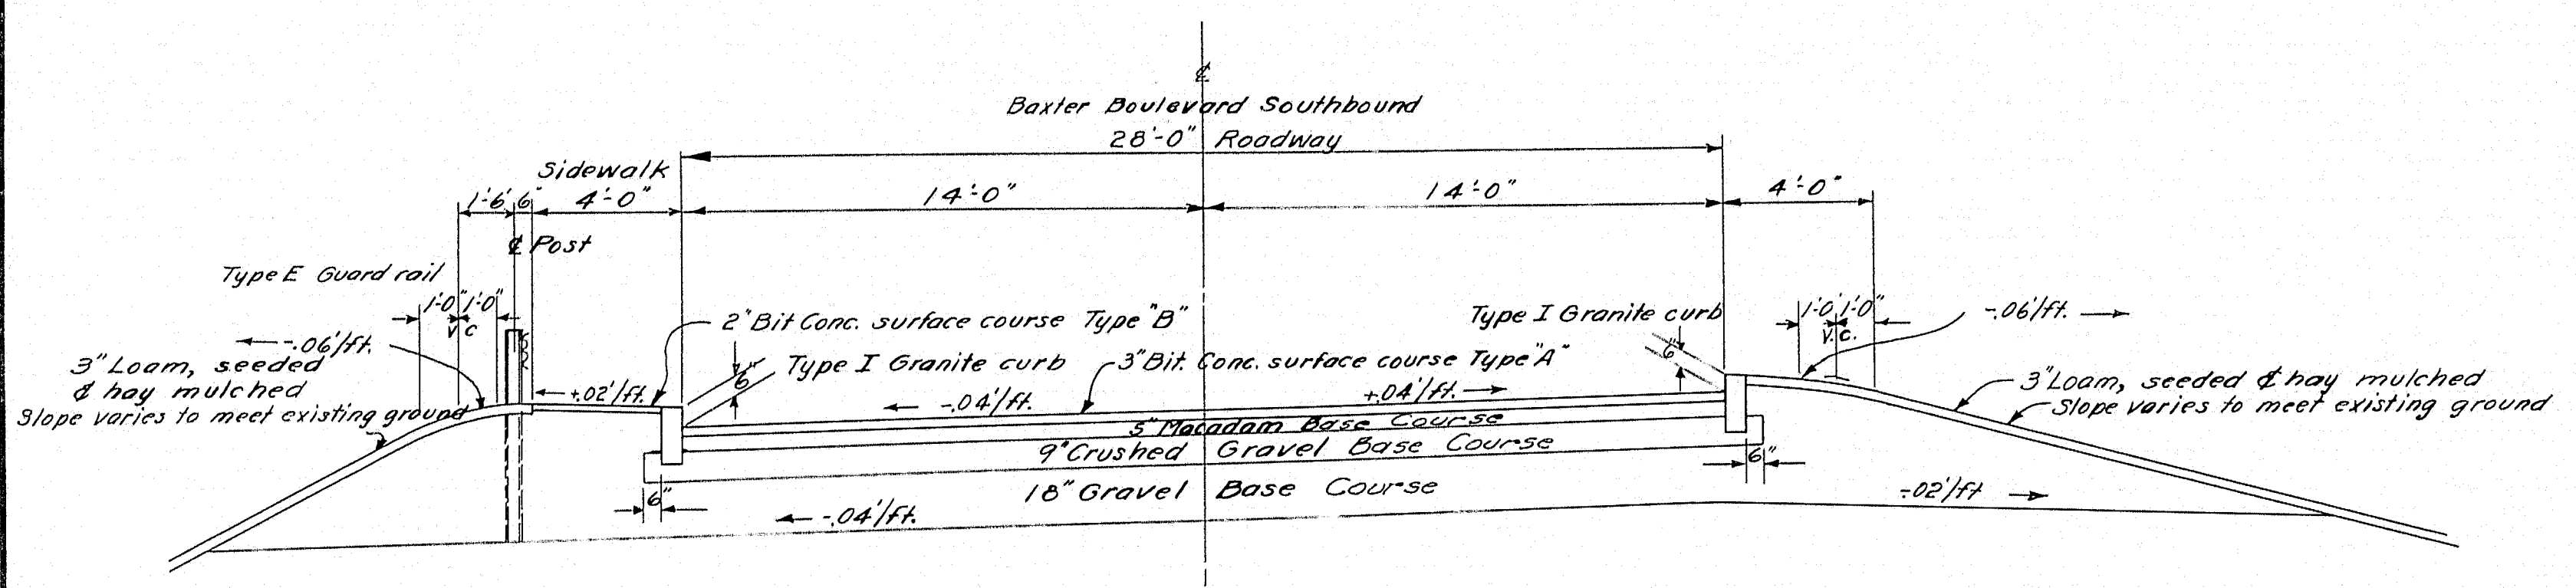 ℄
Baxter Boulevard Southbound
28'-0" Roadway
Sidewalk
1'-6" 6" 4'-0" 14'-0" 14'-0" 4'-0"
℄ Post
Type E Guard rail
1'-0" 1'-0"
V C
-.06'/ft.
3" Loam, seeded
& hay mulched
Slope varies to meet existing ground
+.02'/ft.
2" Bit Conc. surface course Type "B"
6"
Type I Granite curb
3" Bit. Conc. surface course Type "A"
Type I Granite curb
6"
1'-0" 1'-0"
V.C.
-.06'/ft.
3" Loam, seeded & hay mulched
Slope varies to meet existing ground
-.04'/ft.
+.04'/ft.
5" Macadam Base Course
9" Crushed Gravel Base Course
18" Gravel Base Course
6"
6"
-.04'/ft.
-.02'/ft